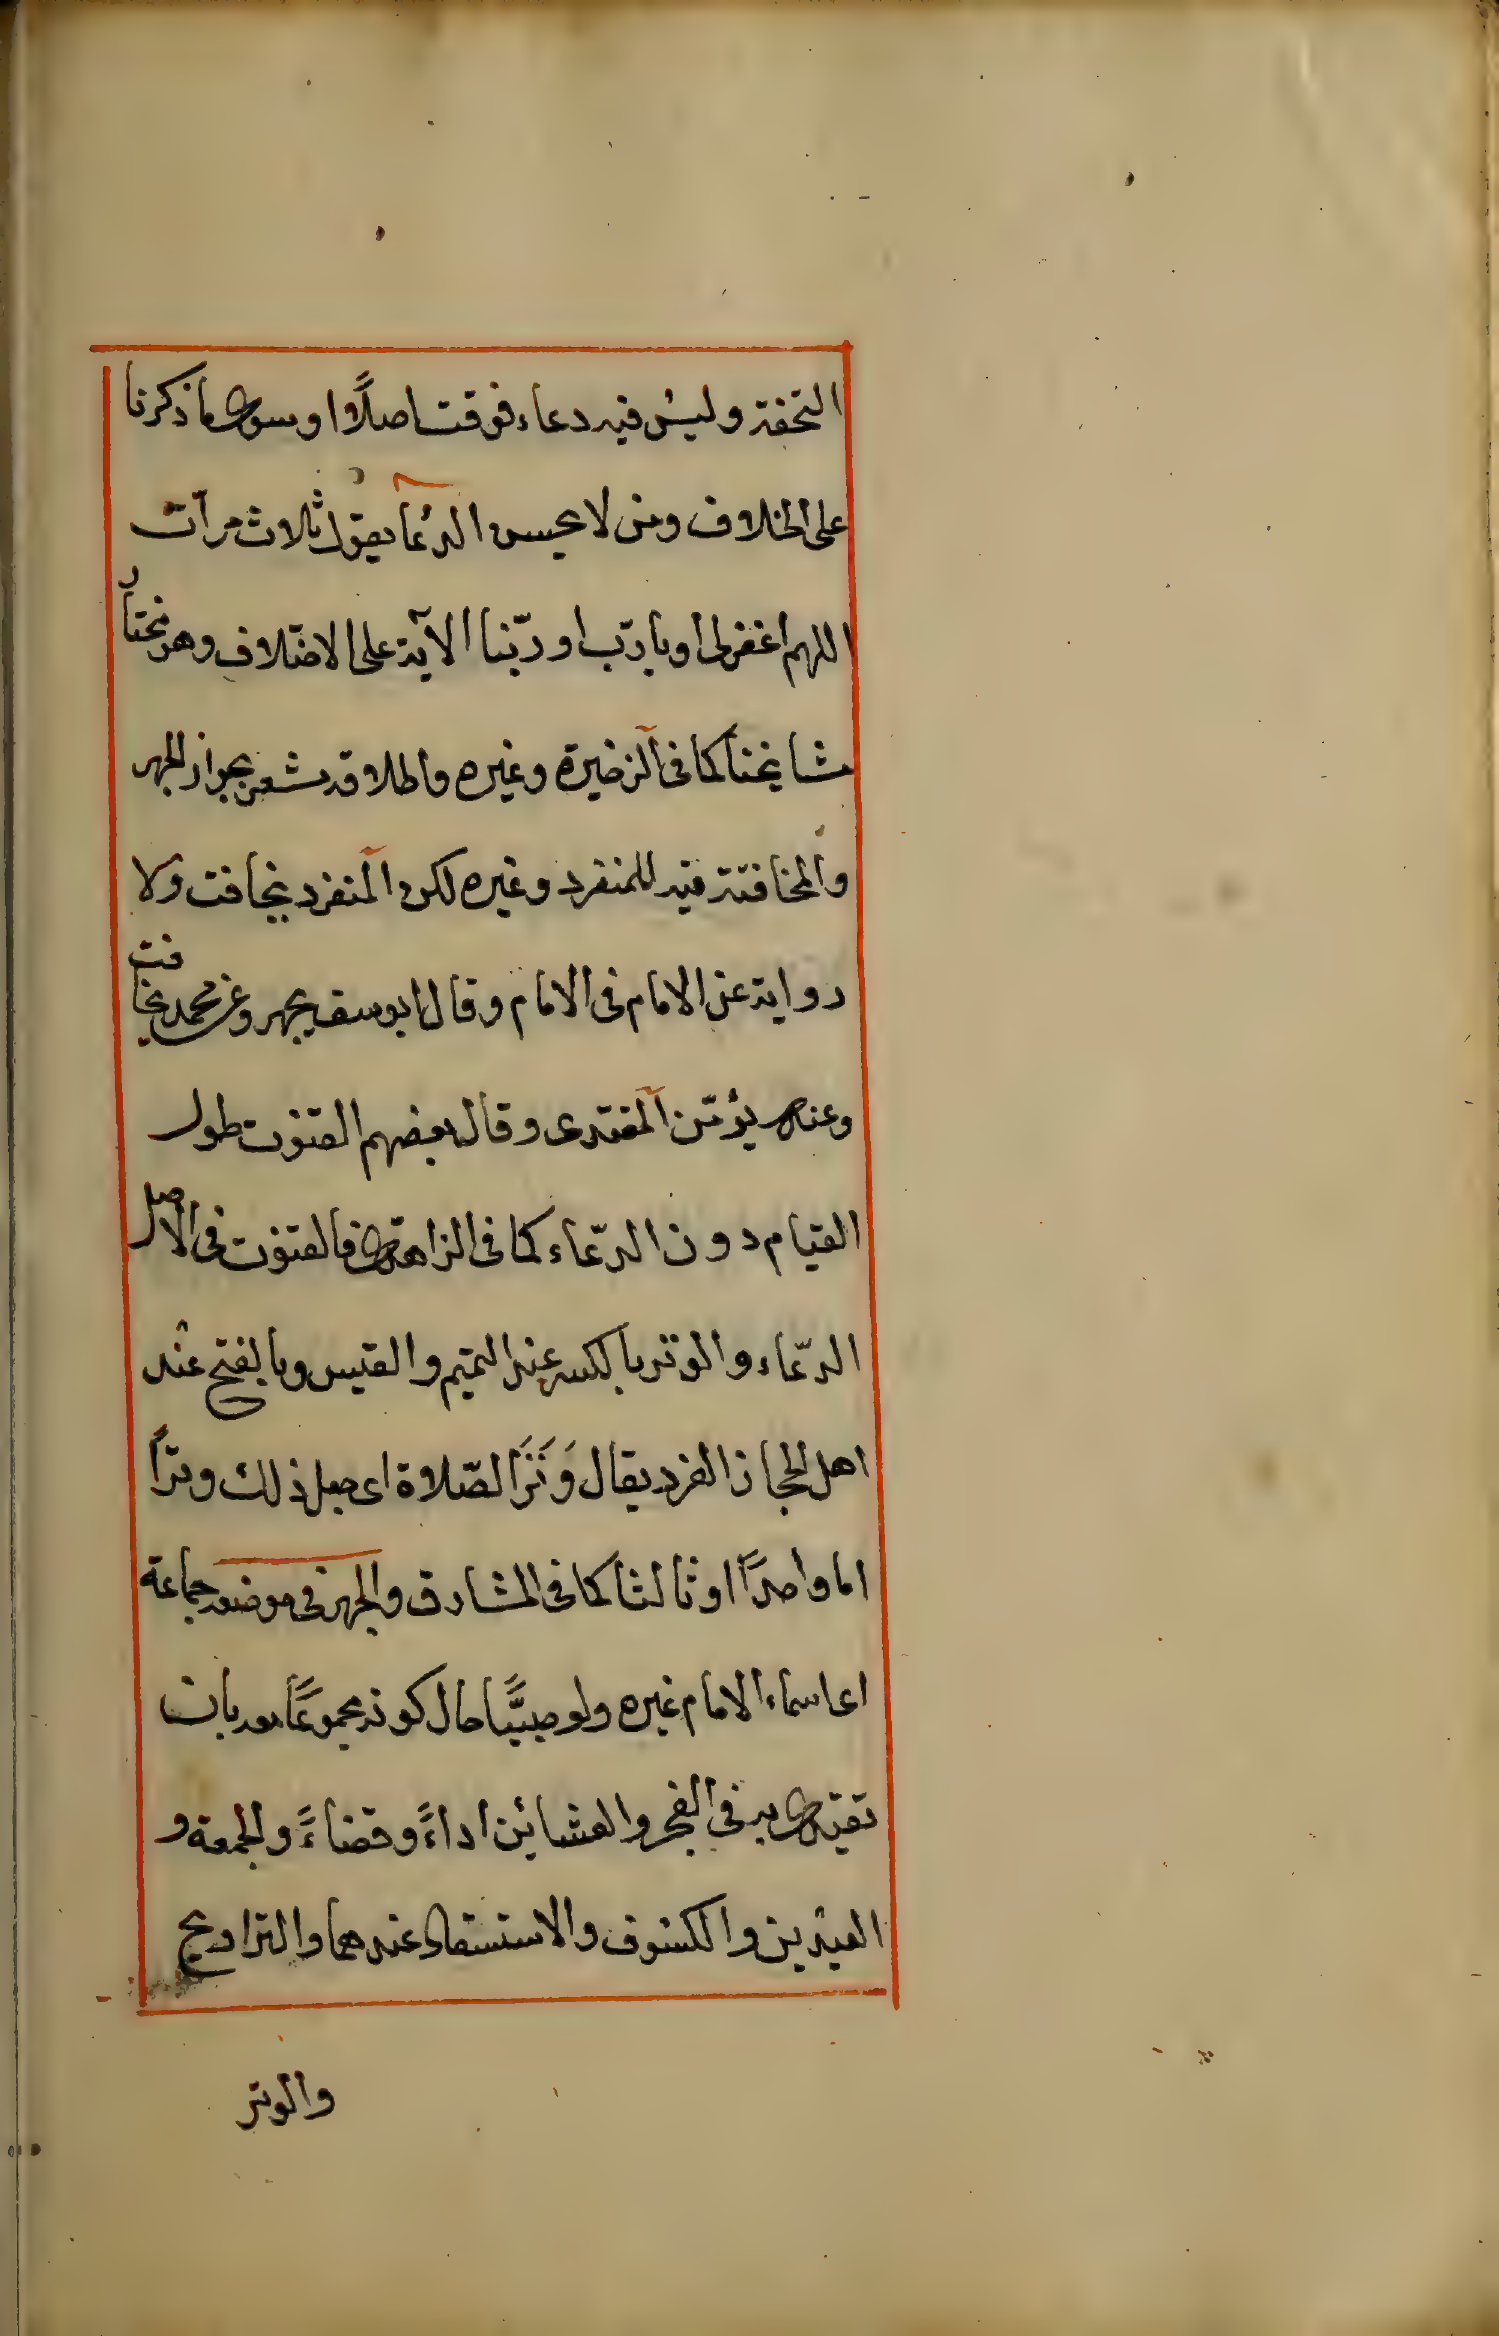 التحفة وليس فيه دعاء موقت اصلاً او سوى ما ذكرنا
على الخلاف ومن لا يحسن الدعاء يقول ثلاث مرات
اللهم اغفر لى او يا ربّ او ربّنا الآية على الاختلاف وهو مختار
مشايخنا كما فى الذخيرة وغيره واطلاقه مشعر بجواز الجهر
والمخافتة فيه للمنفرد وغيره لكن المنفرد يخافت ولا
رواية عن الامام فى الامام وقال ابو يوسف يجهر وعن محمد يخافت
وعنه يؤمّن المقتدى وقال بعضهم القنوت طول
القيام دون الدّعاء كما فى الزاهدى فالقنوت فى الاصل
الدّعاء والوتر بالكسر عند التميم والقيس وبالفتح عند
اهل الحجاز الفرد يقال وَتَرَ الصّلاة اى جعل ذلك وتراً
اما واحداً او ثالثا كما فى المشارق والجهر فى موضعه جماعة
اى اسماع الامام غيره ولو صبيًّا حال كونه مجموعًا معه بان
تقيدى به فى الفجر والعشائين اداءً وقضاءً والجمعة و
العيدين والكسوف والاستسقاء عندهما والتراويح
والوتر